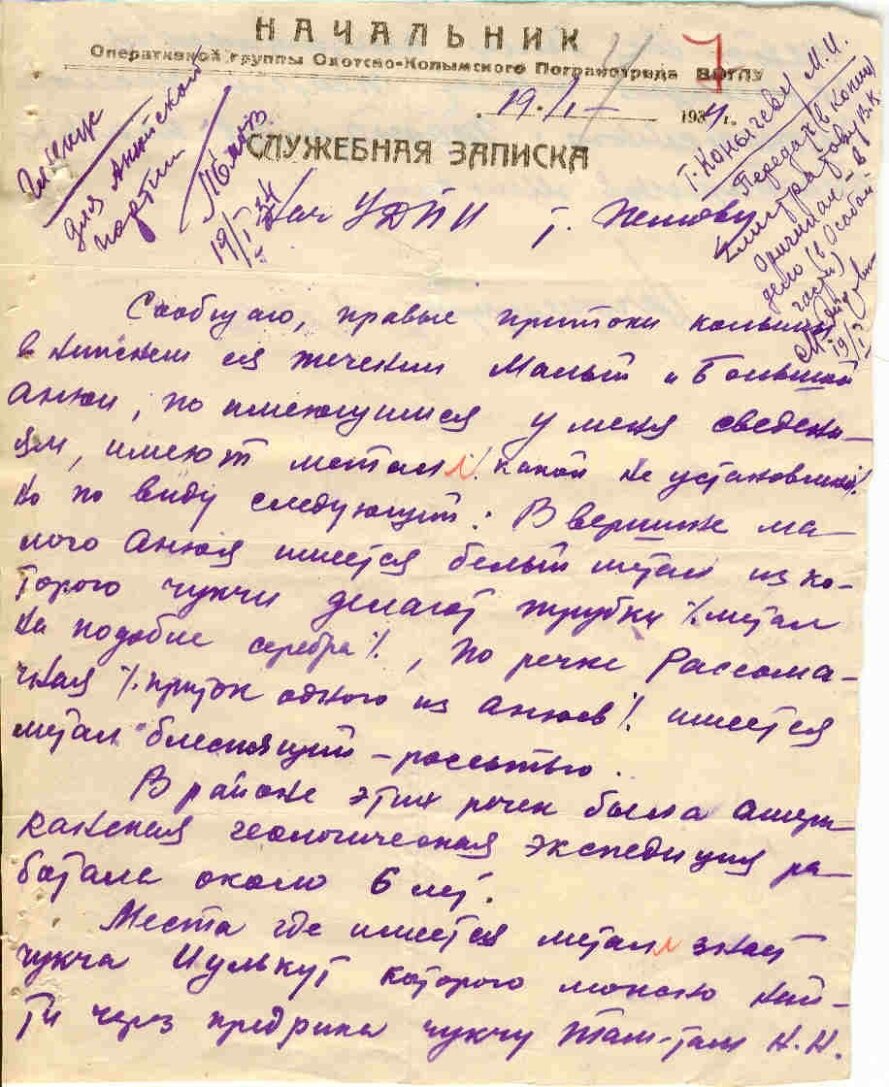 НАЧАЛЬНИК
Оперативной группы Охотско-Колымского Погранотряда ВОГПУ
19/I- 1934 г.
СЛУЖЕБНАЯ ЗАПИСКА
для Анюйской
партии
19/I 34
Т. Конычеву М.И.
Передать в копии
Оригинал - в
дело (в Особой
части)
19/I
Нач УДПИ т.
Сообщаю, правые притоки колымы
в нижнем ея течении Малый и Большой
Анюи, по имеющимся у меня сведени-
ям, имеют металл, какой не установлено
но по виду следующий: В вершине ма-
лого Анюя имеется белый метал из ко-
торого чукчи делают трубки %метал
на подобие серебра%, по речке Рассома-
чная %приток одного из анюев% имеется
метал блестящий - россыпью.
В районе этих речек была амери-
канская геологическая экспедиция ра-
ботала около 6 лет.
Места где имеется металл знает
чукча Иулькут которого можно най-
ти через предрика чукчу Там-Там Н.Н.